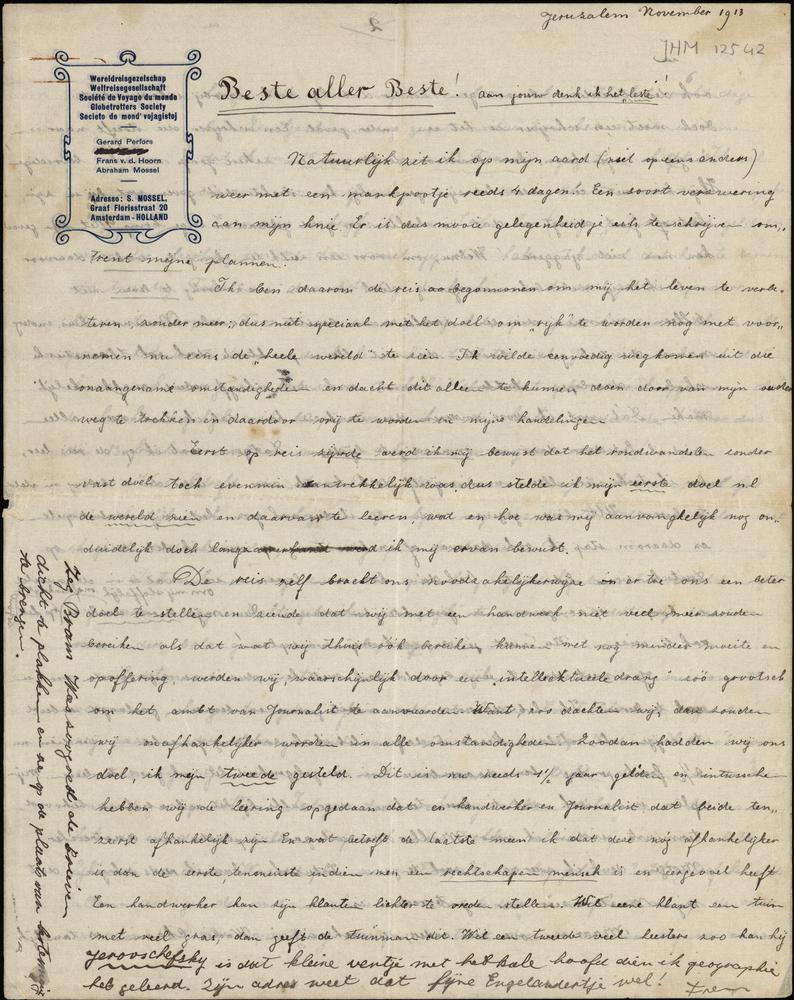 Jeruzalem November 1913
JHM 12542
Wereldreisgezelschap
Weltreisegesellschaft
Société de Voyage du monde
Globetrotters Society
Societo de mond' vojagistoj
Gerard Perfors
Frans v. d. Hoorn
Abraham Mossel
Adresse: S. MOSSEL,
Graaf Florisstraat 20
Amsterdam - HOLLAND
Beste aller Beste! aan jouw denk ik het "leste"!
Natuurlijk zit ik op mijn aard (niet op eens anders)
weer met een mankpootje reeds 4 dagen! Een soort verzwering
aan mijn knie Er is dus mooie gelegenheid je iets te schrijven om„
trent mijne plannen.
Ik ben daarom de reis zoo begonnen om mij het leven te verbe„
teren, zonder meer; dus niet speciaal met het doel om „rijk" te worden nog met voor„
nemen nu eens de „heele wereld" te zien. Ik wilde eenvoudig wegkomen uit die
onaangename omstandigheden en dacht dit alleen te kunnen doen door van mijn ouders
weg te trekken en daardoor vrij te worden in mijne handelingen
Eerst op reis zijnde werd ik mij bewust dat het rondwandelen zonder
vast doel toch evenmin aantrekkelijk was, dus stelde ik mijn eerste doel nl
de wereld zien en daarvan te leeren, wat en hoe was mij aanvangkelijk nog on„
duidelijk doch langzaamerhand werd ik mij ervan bewust.
De reis zelf bracht ons noodzakelijkerwijze er toe ons een beter
doel te stellen en ziende dat wij met een handwerk niet veel meer zouden
bereiken als dat wat wij thuis ook bereiken kunnen met nog minder moeite en
opoffering, werden wij, waarschijnlijk door een „intellektueele drang" zoo grootsch
om het ambt van Journalist te aanvaarden Want, zoo dachten wij, dan zouden
wij onafhankelijker worden in alle omstandigheden. Zoodan hadden wij ons
doel, ik mijn tweede gesteld. Dit is nu reeds 1½ jaar geleden en intusschen
hebben wij de leering opgedaan dat en handwerker en Journalist dat beide ten„
zeerst afhankelijk zijn En wat betreft de laatste meen ik dat deze nog afhankelijker
is dan de eerste tenminste indien men een rechtschapen mensch is en eergevoel heeft
Een handwerker kan zijn klanten lichter te vrede stellen. Wil eene klant een tuin
met veel gras, dan geeft de tuinman dit. Wil een tweede veel heesters zoo kan hij
Jerovschefsky is dat kleine ventje met het kale hoofd dien ik geographie
heb geleerd. Zijn adres weet dat fijne Engelandertje wel!
Zeg Bram Was zoogoed de brieven
dicht te plakken en ze op de plaats van bestemming
te brengen.